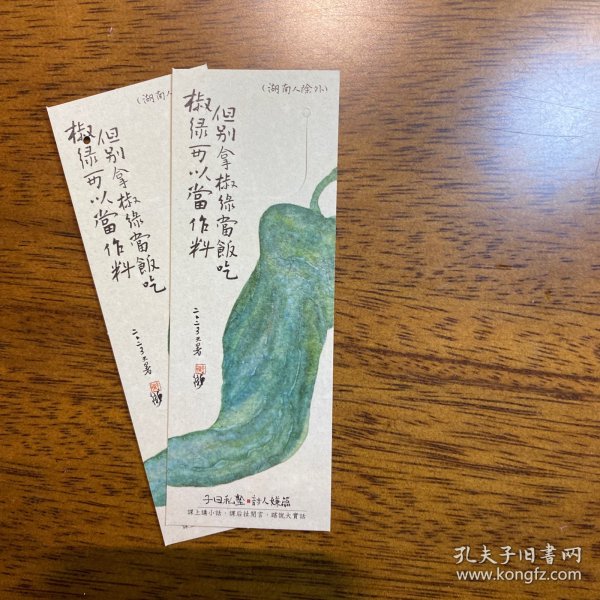 椒绿可以當作料
但别拿椒绿當飯吃
(湖南人除外)
二〇二三大暑
子曰私塾 討人嫌篇
課上講小話，課后扯閒言，瞎說大實話
(湖南人
椒绿可以當作料
但别拿椒绿當飯吃
二〇二三大暑
孔夫子旧书网
www.kongfz.com